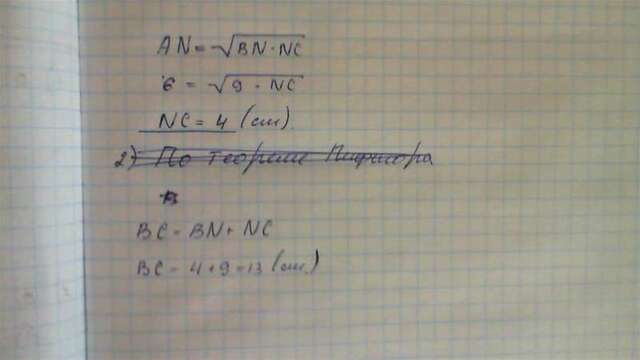 AN = √BN · NC
6 = √9 · NC
NC = 4 (см).
2) По теореме Пифагора
В
BC = BN + NC
BC = 4 + 9 = 13 (см)